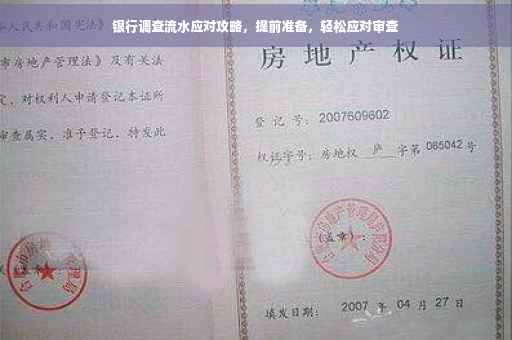 银行调查流水应对攻略，提前准备，轻松应对审查
华人民共和国宪法》
市房地产管理法》及有关法
定，对权利人申请登记本证所
审查属实，准予登记，特发此
房地产权证
登记号：2007609602
权证字号：房地权 庐 字第 085042 号
（盖章）：
填发日期：2007 年 04 月 27 日